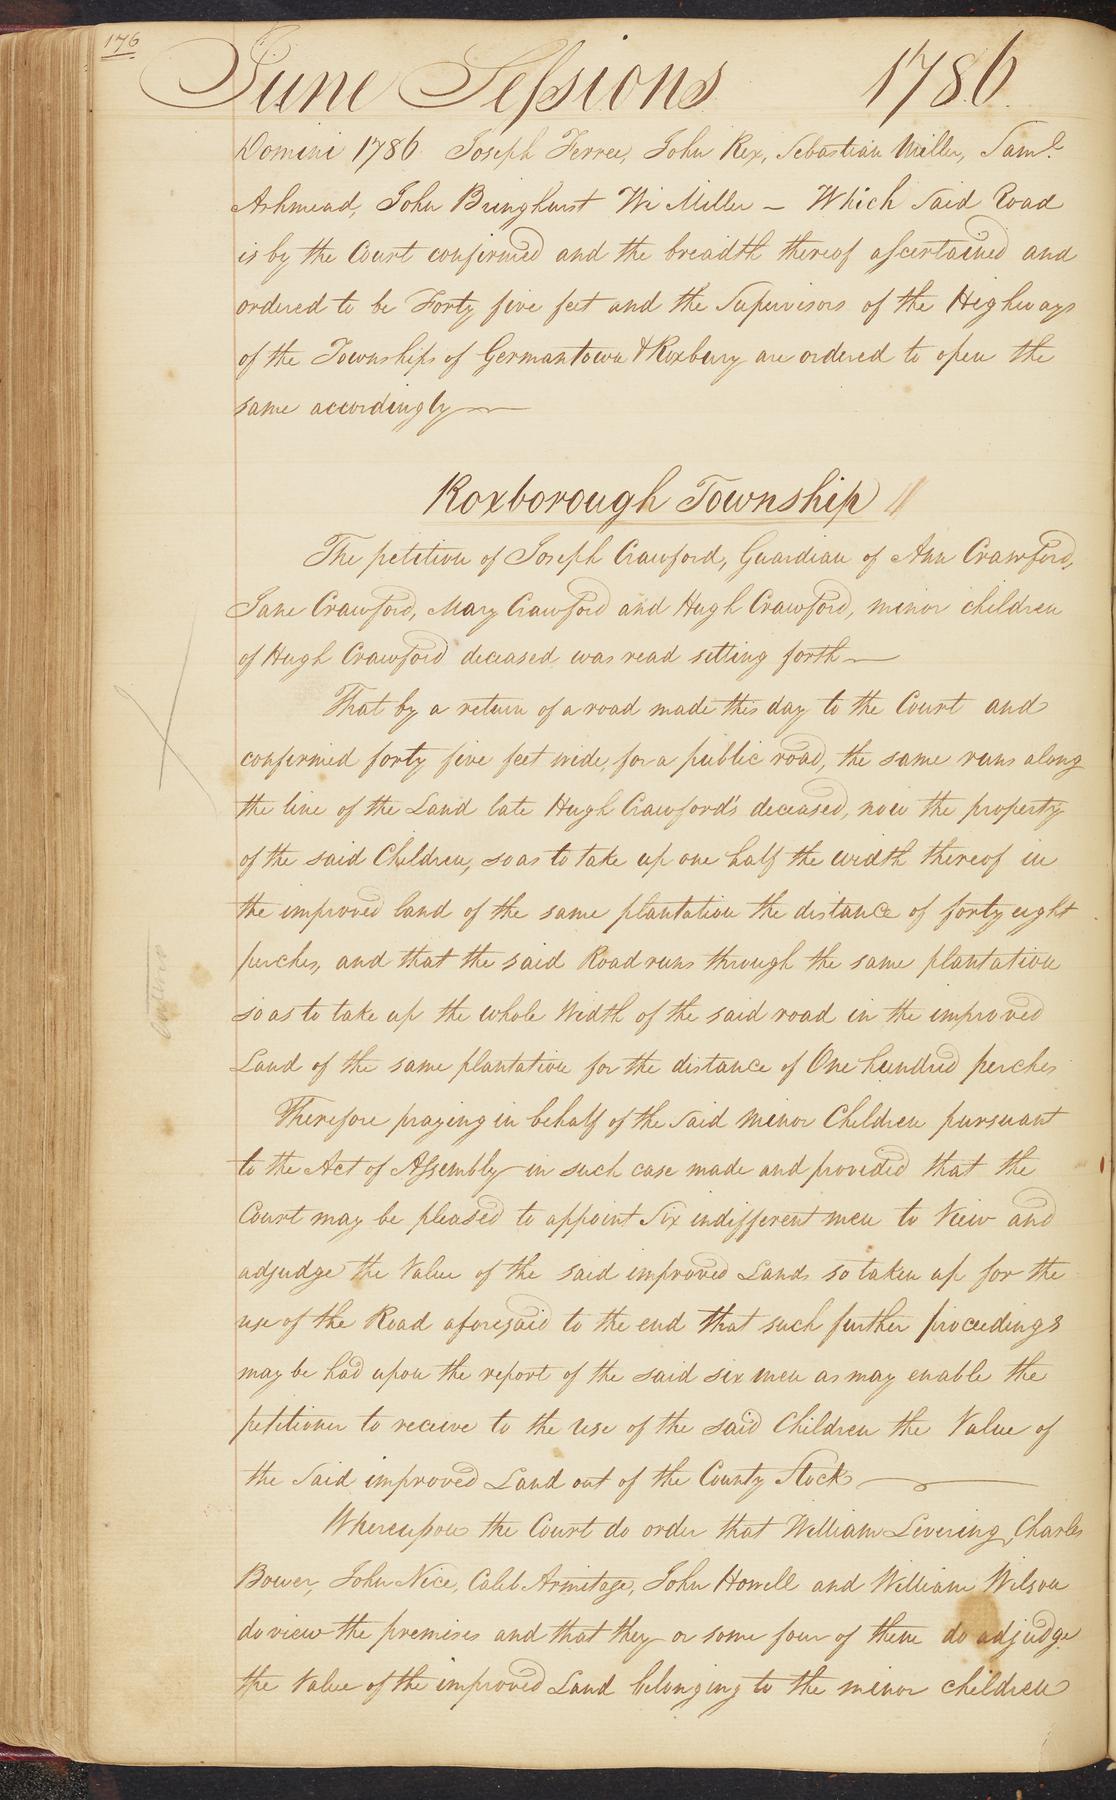 176
June Sessions 1786.
Domini 1786 Joseph Ferree, John Rex, Sebastian Miller, Saml.
Ashmead, John Bringhurst Wi Miller – Which said Road
is by the Court confirmed and the breadth thereof ascertained and
ordered to be Forty five feet and the Supervisors of the Highways
of the Townships of Germantown & Roxbury are ordered to open the
same accordingly —
Roxborough Township //
The petition of Joseph Crawford, Guardian of Ann Crawford,
Jane Crawford, Mary Crawford and Hugh Crawford, minor children
of Hugh Crawford deceased was read setting forth —
That by a return of a road made this day to the Court and
confirmed forty five feet wide, for a public road, the same runs along
the line of the Land late Hugh Crawford's deceased, now the property
of the said Children, so as to take up one half the width thereof in
the improved land of the same plantation the distance of forty eight
perches, and that the said Road runs through the same plantation
so as to take up the whole Width of the said road in the improved
Land of the same plantation for the distance of One hundred perches
Therefore praying in behalf of the said minor Children pursuant
to the Act of Assembly in such case made and provided that the
Court may be pleased to appoint Six indifferent men to View and
adjudge the Value of the said improved Lands so taken up for the
use of the Road aforesaid to the end that such further proceedings
may be had upon the report of the said six men as may enable the
petitioner to receive to the use of the said Children the Value of
the said improved Land out of the County Stock —
Whereupon the Court do order that William Levering, Charles
Bower, John Nice, Caleb Armitage, John Howell and William Wilson
do view the premises and that they or some four of them do adjudge
the Value of the improved Land belonging to the minor children